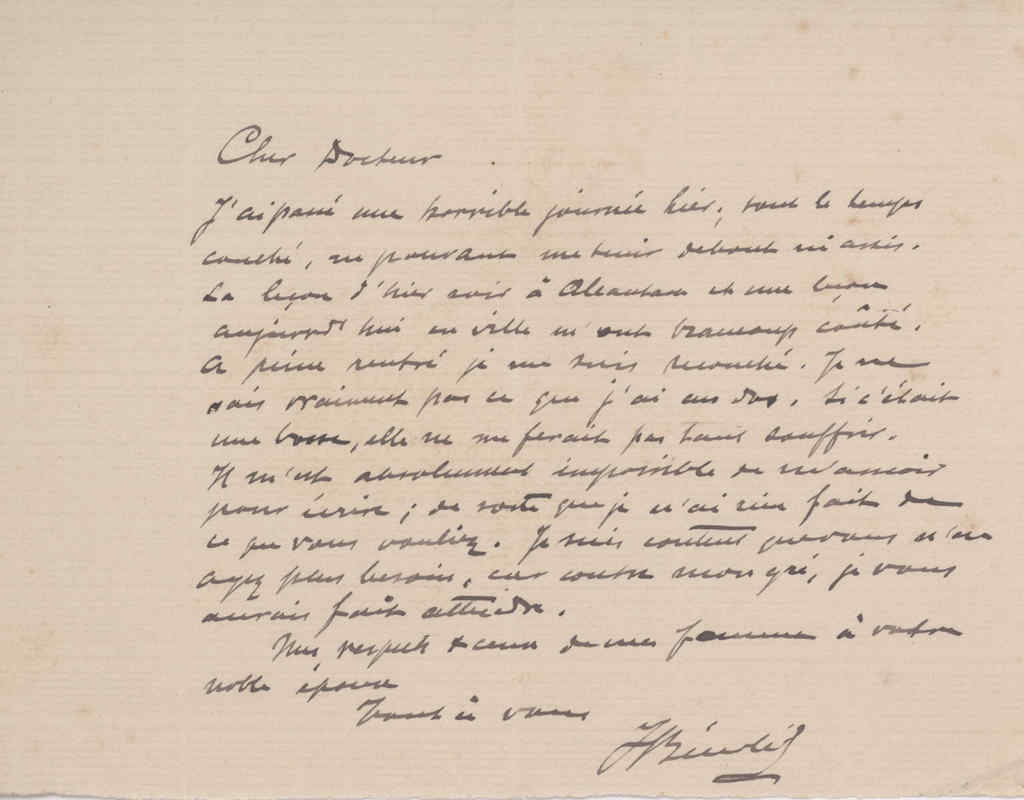 Cher Docteur
J'ai passé une horrible journée hier, tout le temps
couché, ne pouvant me tenir debout ni assis.
La leçon d'hier soir à et une leçon
aujourd'hui en ville m'ont beaucoup coûté.
A peine rentré je me suis recouché. Je ne
sais vraiment pas ce que j'ai au dos. Si c'était
une bosse, elle ne me ferait pas tant souffrir.
Il m'est absolument impossible de m'asseoir
pour écrire ; de sorte que je n'ai rien fait de
ce que vous vouliez. Je suis content que vous n'en
ayez plus besoin, car contre mon gré, je vous
aurais fait attendre.
Mes respects & ceux de ma femme à votre
noble épouse
Tout à vous